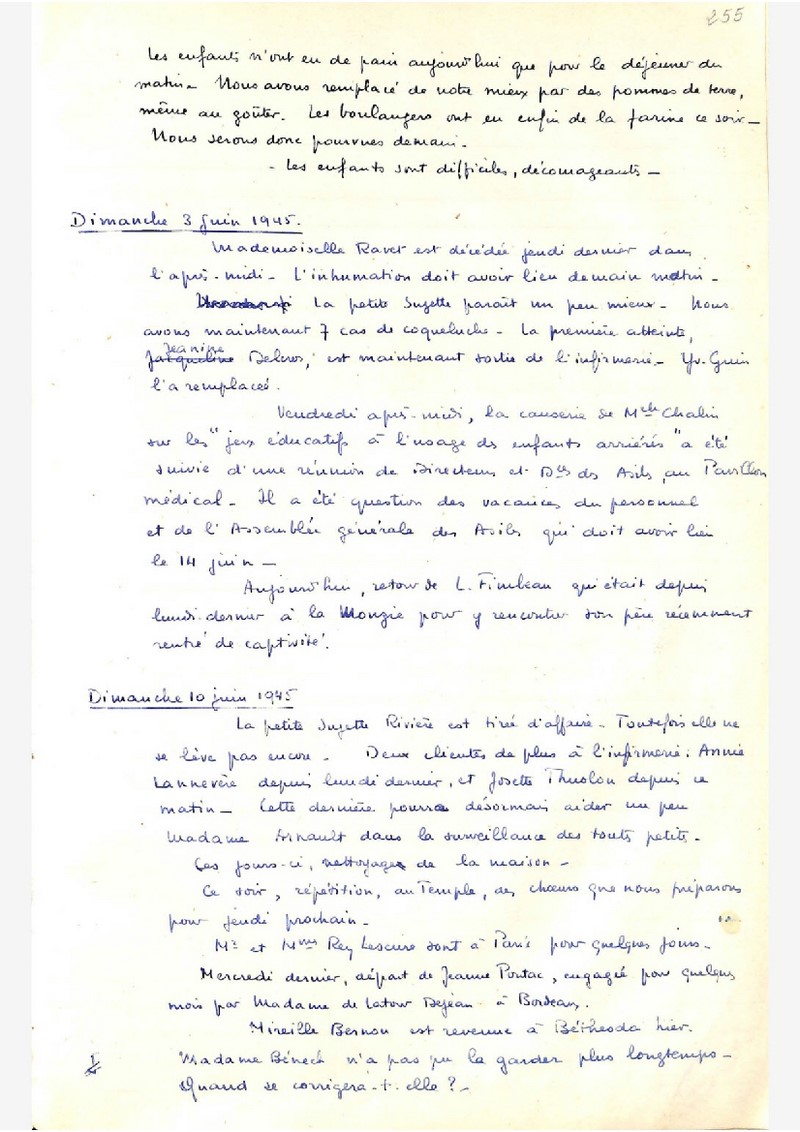 255
Les enfants n'ont eu de pain aujourd'hui que pour le déjeuner du
matin. Nous avons remplacé de notre mieux par des pommes de terre,
même au goûter. Les boulangers ont eu enfin de la farine ce soir _
Nous serons donc pourvues demain.
- Les enfants sont difficiles, décourageants _
Dimanche 3 Juin 1945.
Mademoiselle Ravet est décédée jeudi dernier dans
l'après-midi - L'inhumation doit avoir lieu demain matin _
La petite Suzette paraît un peu mieux - Nous
avons maintenant 7 cas de coqueluche - La première atteinte,
Jeanine
Jacqueline Delcros, est maintenant sortie de l'infirmerie _ Yv. Guin
l'a remplacée.
Vendredi après-midi, la causerie de Melle Chalin
sur les "jeux éducatifs à l'usage des enfants arriérés" a été
suivie d'une réunion de Directeurs et Dces des Asiles, au Pavillon
médical - Il a été question des vacances du personnel
et de l'Assemblée générale des Asiles qui doit avoir lieu
le 14 juin _
Aujourd'hui, retour de L. Fimbeau qui était depuis
lundi dernier à la Mongie pour y rencontrer son père récemment
rentré de captivité.
Dimanche 10 juin 1945
La petite Suzette Rivière est tirée d'affaire - Toutefois elle ne
se lève pas encore - Deux clientes de plus à l'infirmerie : Annie
Lannevère depuis lundi dernier, et Josette Thuolon depuis ce
matin _ Cette dernière pourra désormais aider un peu
Madame Arnault dans la surveillance des touts petits -
Ces jours-ci, nettoyage de la maison -
Ce soir, répétition, au Temple, des chœurs que nous préparons
pour jeudi prochain -
Mr et Mme Rey Lescure sont à Paris pour quelques jours -
Mercredi dernier, départ de Jeanne Pontac, engagée pour quelques
mois par Madame de Latour Dejean à Bordeaux.
Mireille Bernon est revenue à Béthesda hier.
Madame Béneck n'a pas pu la garder plus longtemps -
Quand se corrigera-t-elle ? -